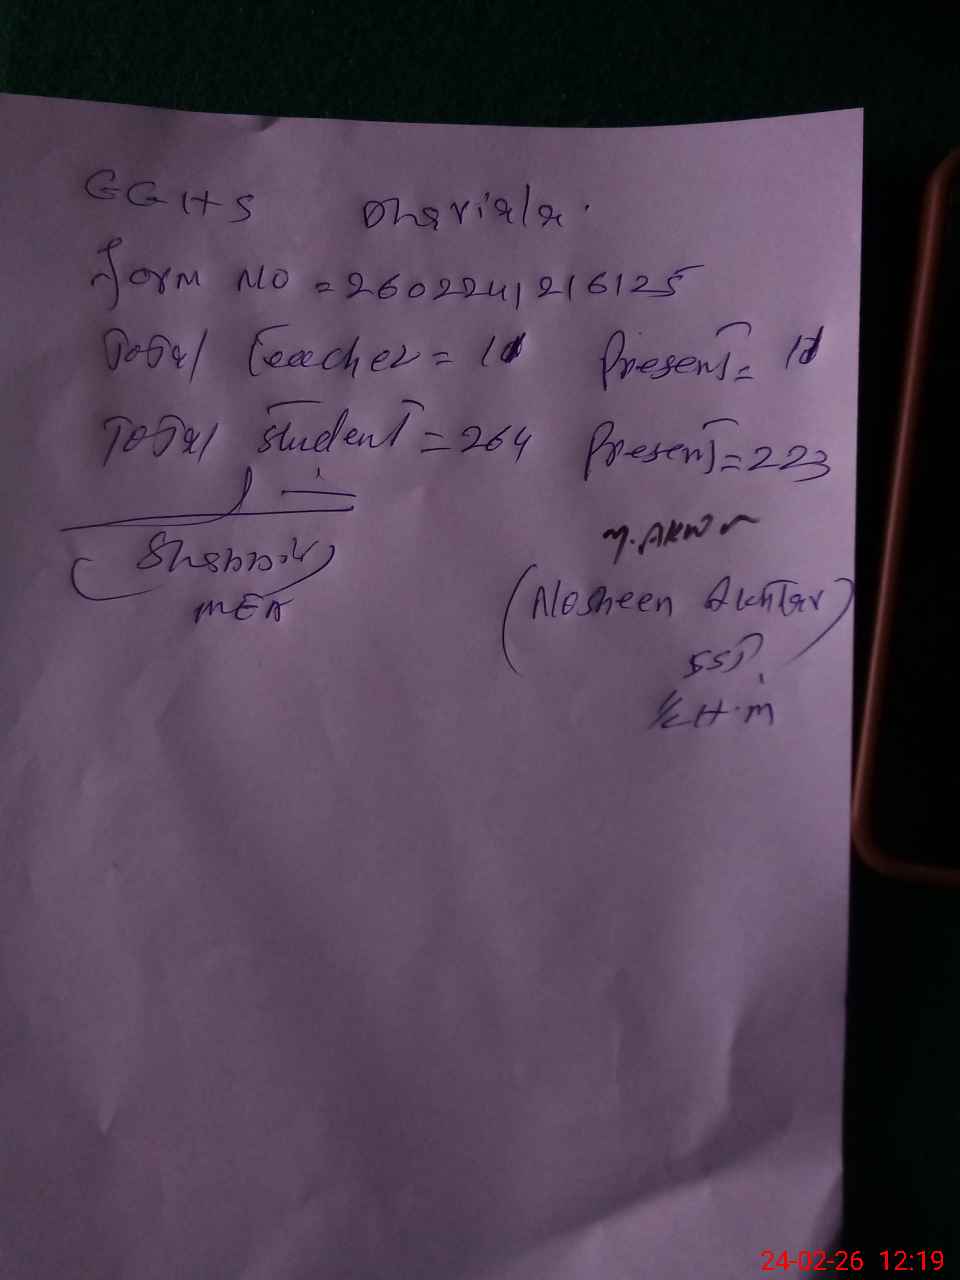 GGHS Dhariala.
Form No = 260224121 6125
Total Teacher = Present =
Total Student = 264 Present = 223
N. Akhtar
(Nosheen Akhtar)
MEA
SST
I/C H.M
24-02-26 12:19